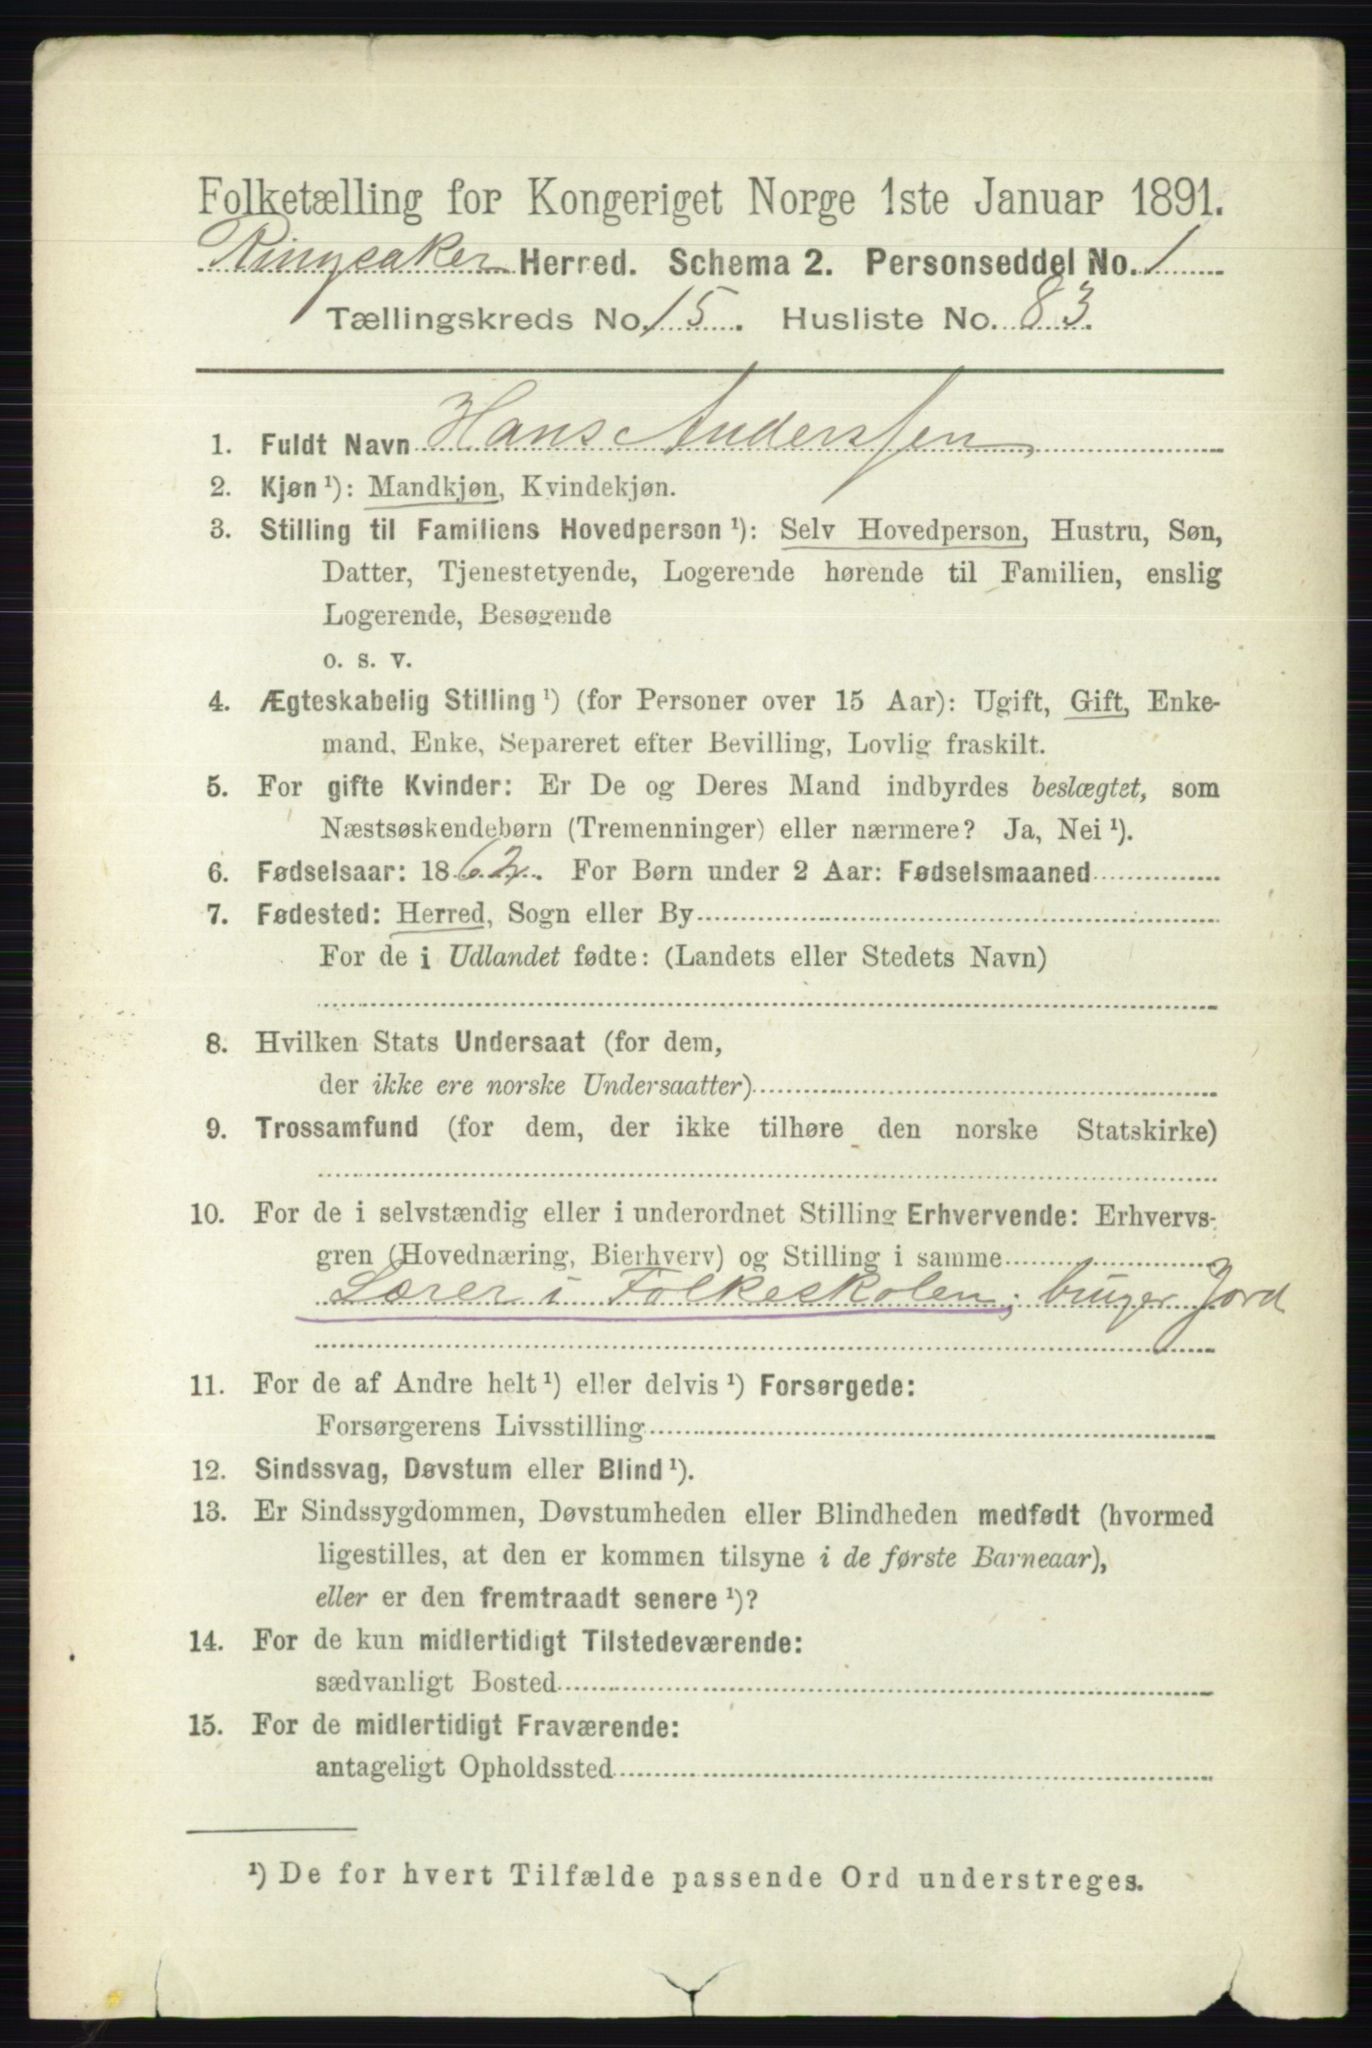 Folketælling for Kongeriget Norge 1ste Januar 1891.
Ringsaker Herred. Schema 2. Personseddel No. 1
Tællingskreds No. 15. Husliste No. 83.
1. Fuldt Navn Hans Anderssen
2. Kjøn ¹): Mandkjøn, Kvindekjøn.
3. Stilling til Familiens Hovedperson ¹): Selv Hovedperson, Hustru, Søn,
Datter, Tjenestetyende, Logerende hørende til Familien, enslig
Logerende, Besøgende
o. s. v.
4. Ægteskabelig Stilling ¹) (for Personer over 15 Aar): Ugift, Gift, Enke-
mand, Enke, Separeret efter Bevilling, Lovlig fraskilt.
5. For gifte Kvinder: Er De og Deres Mand indbyrdes beslægtet, som
Næstsøskendebørn (Tremenninger) eller nærmere? Ja, Nei ¹).
6. Fødselsaar: 1862. For Børn under 2 Aar: Fødselsmaaned
7. Fødested: Herred, Sogn eller By
For de i Udlandet fødte: (Landets eller Stedets Navn)
8. Hvilken Stats Undersaat (for dem,
der ikke ere norske Undersaatter)
9. Trossamfund (for dem, der ikke tilhøre den norske Statskirke)
10. For de i selvstændig eller i underordnet Stilling Erhvervende: Erhvervs-
gren (Hovednæring, Bierhverv) og Stilling i samme
Lærer i Folkeskolen; bruger Jord
11. For de af Andre helt ¹) eller delvis ¹) Forsørgede:
Forsørgerens Livsstilling
12. Sindssvag, Døvstum eller Blind ¹).
13. Er Sindssygdommen, Døvstumheden eller Blindheden medfødt (hvormed
ligestilles, at den er kommen tilsyne i de første Barneaar),
eller er den fremtraadt senere ¹)?
14. For de kun midlertidigt Tilstedeværende:
sædvanligt Bosted
15. For de midlertidigt Fraværende:
antageligt Opholdssted
¹) De for hvert Tilfælde passende Ord understreges.